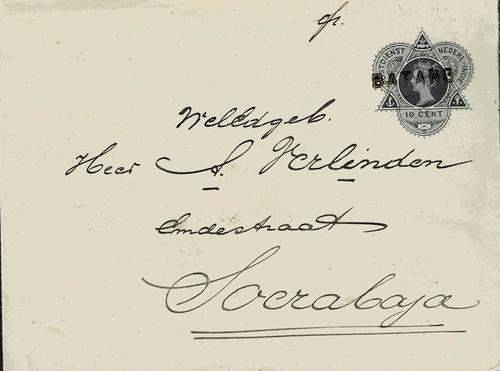 fr.
POSTDIENST NEDERL-INDIE
BATANG
10 CENT
WelEdgeb.
Heer A. Verlinden
Emdestraat
Soerabaja